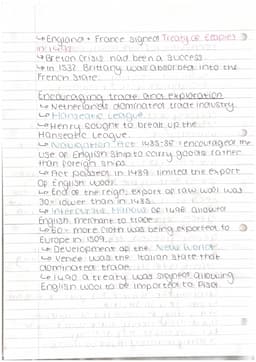 ↳ England + France signed Treaty of Etaples
in 1492.
↳ Breton Crisis had been a success
↳ In 1532 Brittany was absorbed into the
French State.
Encouraging trade and exploration
↳ Netherlands dominated trade industry.
↳ Hanseatic League
↳ Henry sought to break up the
Hanseatic League.
↳ Navigation Act 1485-86 = encouraged the
use of English ship to carry goods rather
than foreign ships.
↳ Act passed in 1489 limited the export
of English wool.
↳ End of the reign, export of raw wool was
30% lower than in 1485.
↳ Intercursus Magnus of 1496 allowed
English merchant to trade.
↳ 60% more cloth was being exported to
Europe in 1509.
↳ Development of the New World.
↳ Venice was the Italian state that
dominated trade.
↳ 1490 a treaty was signed allowing
English wool to be imported to Pisa.